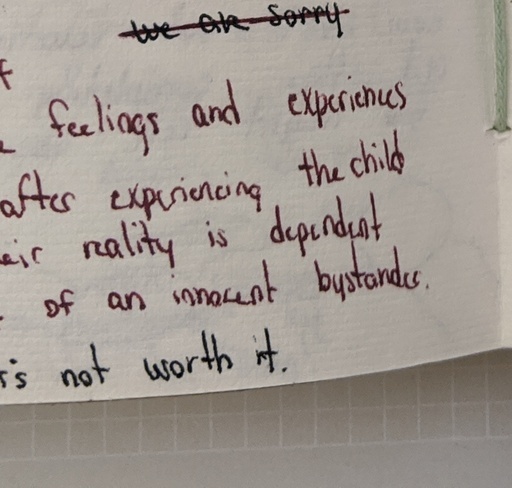 We are sorry
feelings and experiences
after experiencing the child
eir reality is dependent
of an innocent bystander.
is not worth it.